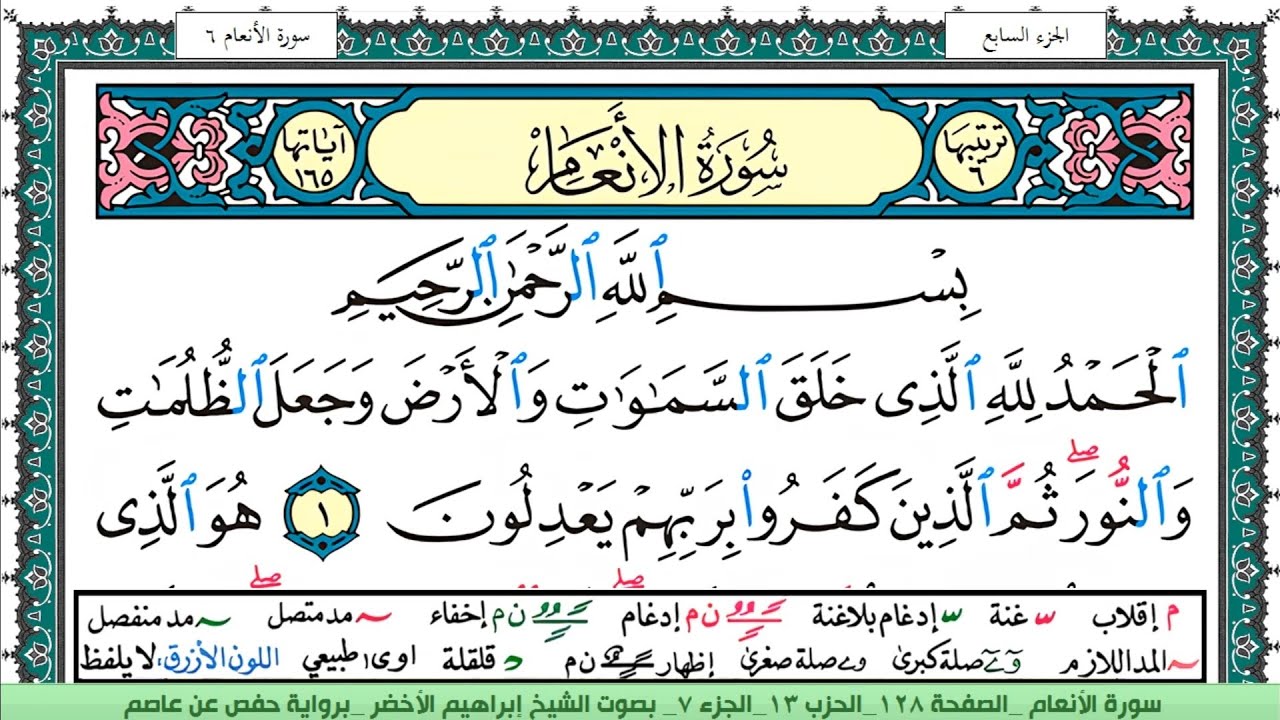 الجزء السابع
سورة الأنعام ٦
ترتيبها ٦
سُورَةُ الأَنْعَامِ
آياتها ١٦٥
بِسْمِ ٱللَّهِ ٱلرَّحْمَٰنِ ٱلرَّحِيمِ
ٱلْحَمْدُ لِلَّهِ ٱلَّذِى خَلَقَ ٱلسَّمَٰوَٰتِ وَٱلْأَرْضَ وَجَعَلَ ٱلظُّلُمَٰتِ
وَٱلنُّورَ ۖ ثُمَّ ٱلَّذِينَ كَفَرُوا۟ بِرَبِّهِمْ يَعْدِلُونَ ١ هُوَ ٱلَّذِى
م إقلاب غنة إدغام بلاغنة ن م إدغام ن م إخفاء مد متصل مد منفصل
المد اللازم صلة كبرى صلة صغرى إظهار ن م قلقلة اوى طبيعي اللون الأزرق: لا يلفظ
سورة الأنعام _الصفحة ١٢٨_الحزب ١٣_الجزء ٧_ بصوت الشيخ إبراهيم الأخضر _برواية حفص عن عاصم